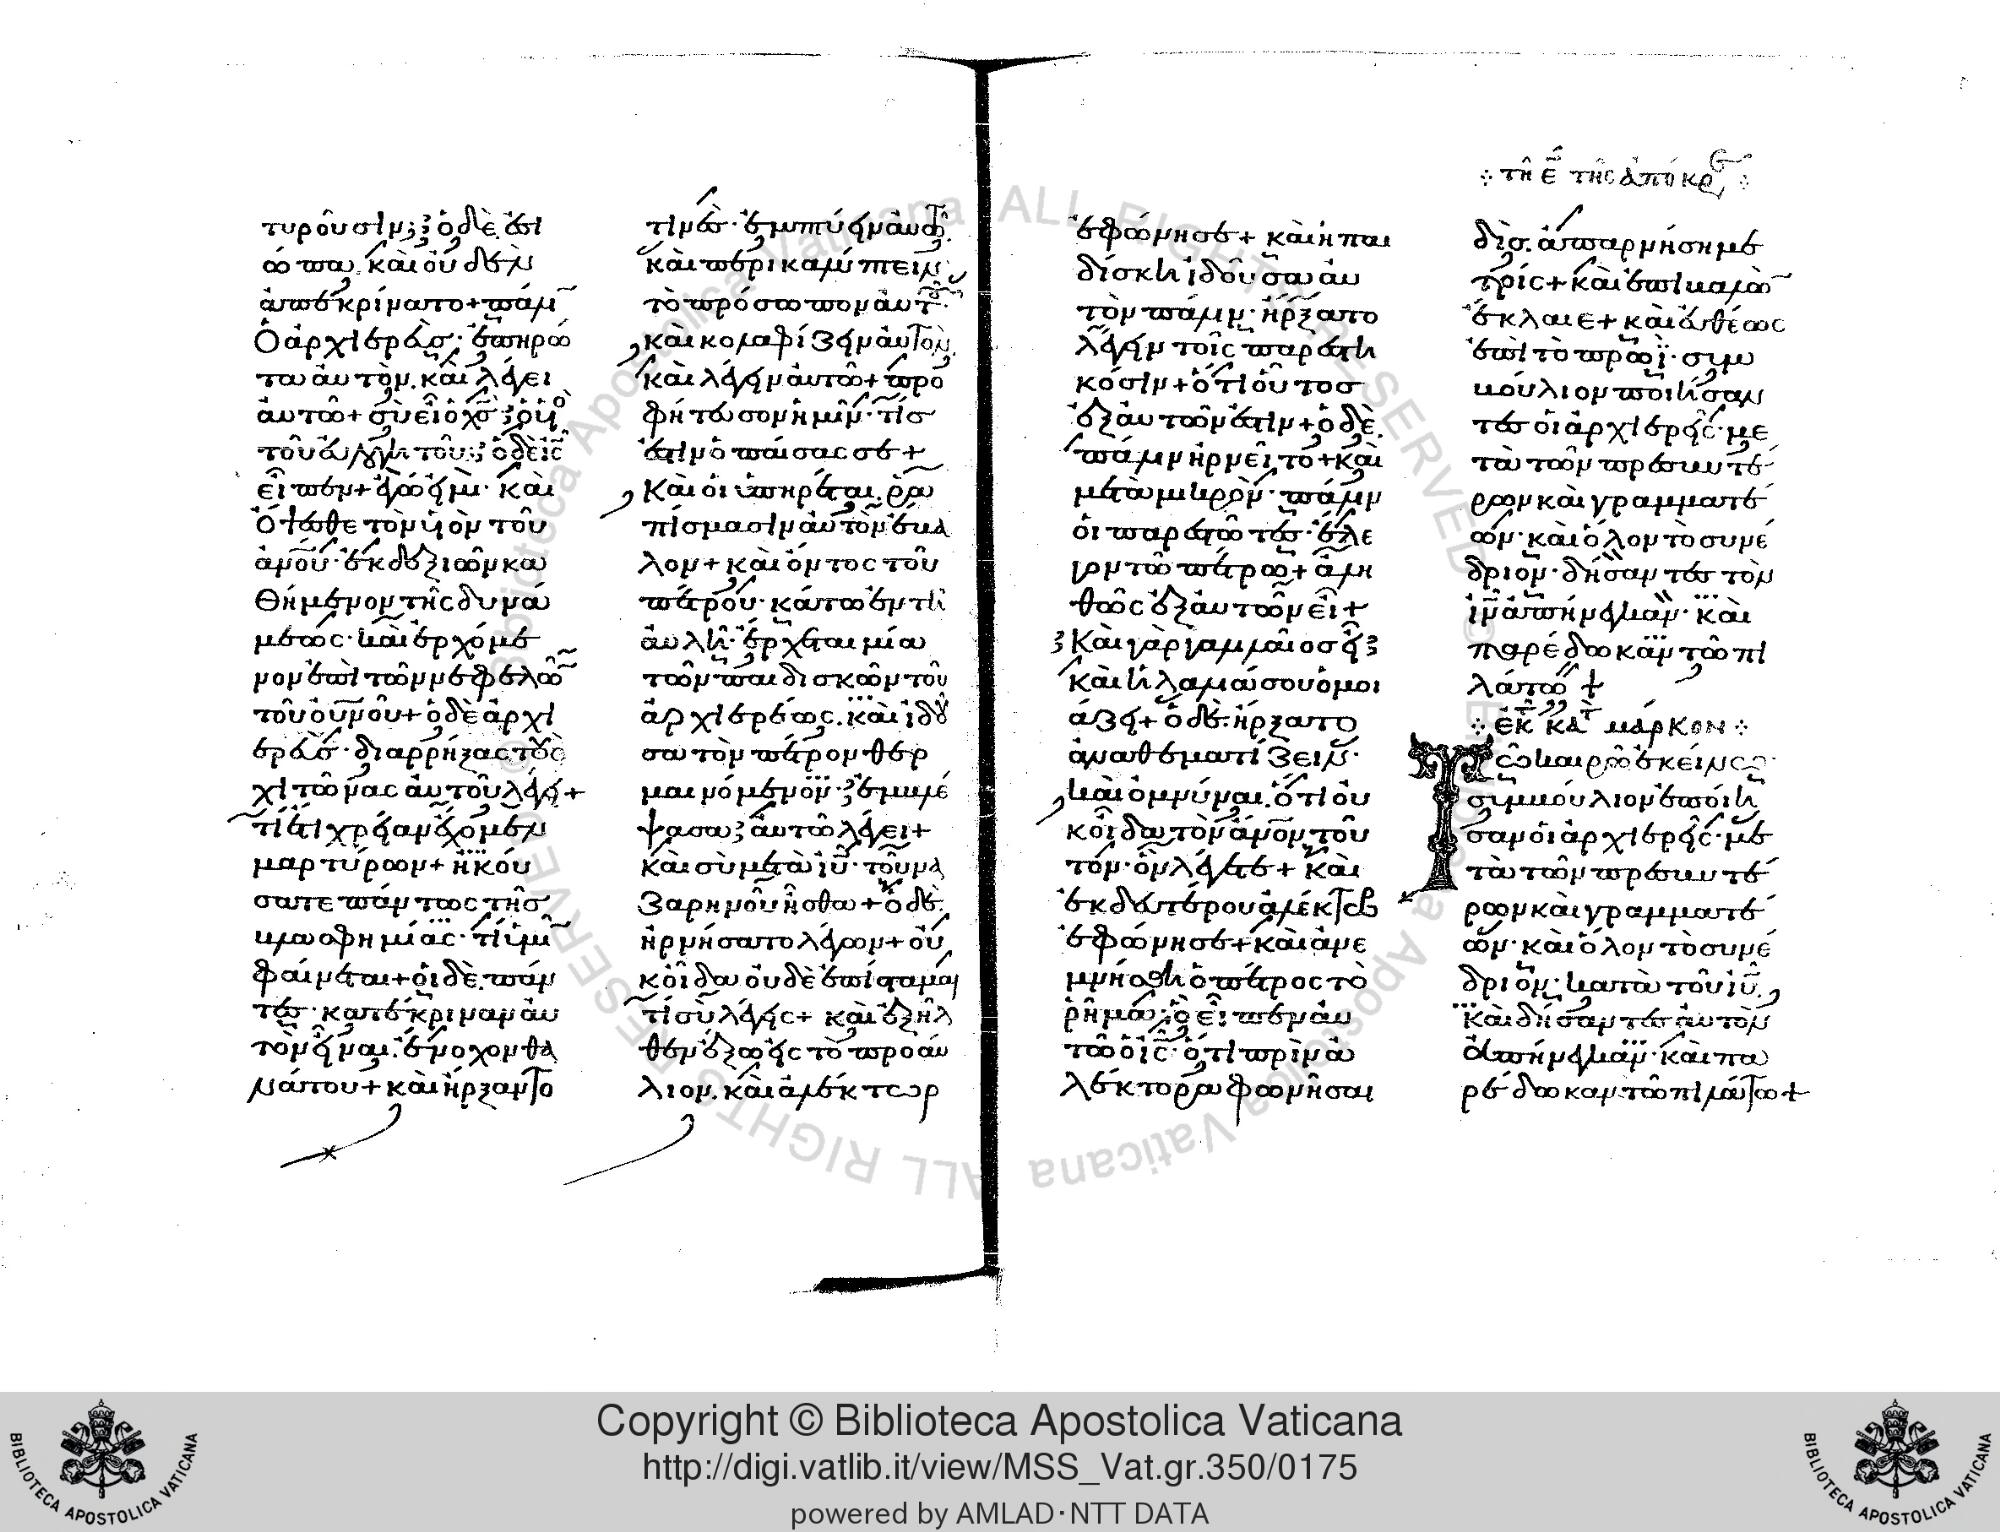 τυροῦσιν; ὁ δὲ ἐσι
ώπα, καὶ οὐδὲν
ἀπεκρίνατο + πάλιν
Ὁ ἀρχιερεὺσ· ἐπηρώ
τα αὐτὸν. καὶ λέγει
αὐτῶ + σὺ εἶ ὁ χς· ὁ υἱὸ
τοῦ εὐλογητοῦ; ὁ δὲ ις
εἶπεν + ἐγώ εἰμι· καὶ
ὄψεσθε τὸν υἱὸν τοῦ
ἀνου· ἐκ δεξιῶν κα
θήμενον τῆς δυνά
μεως· καὶ ἐρχόμε
νον ἐπὶ τῶν νεφελῶν
τοῦ οὐνοῦ + ὁ δὲ ἀρχι
ερεὺσ· διαρρήξας τοὺς
χιτῶνας αὐτοῦ λέγει +
τί ἔτι χρείαν ἔχομεν
μαρτύρων + ἠκού
σατε πάντως τῆσ
βλασφημίας· τί ὑμῖν
φαίνεται + οἱ δὲ πάν
τεσ· κατέκριναν αὐ
τὸν εἶναι. ἔνοχον θα
νάτου + καὶ ἤρξαντο
τινὲσ· ἐμπτύειν αὐτῶ.
καὶ περικαλύπτειν
τὸ πρόσωπον αὐτοῦ·
καὶ κολαφίζειν αὐτὸν.
καὶ λέγειν αὐτῶ + προ
φήτευσον ἡμῖν· τίσ
ἐστιν ὁ παίσας σε +
Καὶ οἱ ὑπηρέται. ῥα
πίσμασιν αὐτὸν ἔβαλ
λον + καὶ ὄντος τοῦ
πέτρου· κάτω ἐν τῆ
αὐλῆ· ἔρχεται μία
τῶν παιδισκῶν τοῦ
ἀρχιερέως. καὶ ἰδοῦ
σα τὸν πέτρον θερ
μαινόμενον· ἐμβλέ
ψασα αὐτῶ λέγει +
καὶ σὺ μετὰ ιυ τοῦ να
ζαρηνοῦ ἦσθα + ὁ δὲ.
ἠρνήσατο λέγων + οὐ
κ οἶδα οὐδὲ ἐπίσταμαι
τί σὺ λέγεις + καὶ ἐξῆλ
θεν ἔξω εἰς τὸ προαύ
λιον. καὶ ἀλέκτωρ
∻ τῆ ε τῆς ἀπόκρ ∻
ἐφώνησε + καὶ ἡ παι
δίσκη ἰδοῦσα αὐ
τὸν πάλιν· ἤρξατο
λέγειν τοῖς παρεστη
κόσιν + ὅτι οὗτοσ
ἐξ αὐτῶν ἐστιν + ὁ δὲ.
πάλιν ἠρνεῖτο + καὶ
μετὰ μικρὸν· πάλιν
οἱ παρεστῶτεσ· ἔλε
γον τῶ πέτρω + ἀλη
θῶς ἐξ αὐτῶν εἶ +
Καὶ γὰρ γαλιλαῖοσ εἶ
καὶ ἡ λαλιά σου ὁμοι
άζει + ὁ δὲ. ἤρξατο
ἀναθεματίζειν·
καὶ ὀμνύναι. ὅτι οὐ
κ οἶδα τὸν ἄνον τοῦ
τόν· ὃν λέγετε + καὶ
ἐκ δευτέρου ἀλέκτωρ
ἐφώνησε + καὶ ἀνε
μνήσθη ὁ πέτρος τὸ
ῥῆμα· ὃ εἶπεν αὐ
τῶ ὁ ις· ὅτι πρὶν ἀ
λέκτορα φωνῆσαι
δὶσ. ἀπαρνήση με
τρίς + καὶ ἐπιβαλὼν
ἔκλαιε + καὶ εὐθέως
ἐπὶ τὸ πρωῒ· συμ
βούλιον ποιήσαν
τεσ οἱ ἀρχιερεῖς· με
τὰ τῶν πρεσβυτέ
ρων καὶ γραμματέ
ων· καὶ ὅλον τὸ συνέ
δριον· δήσαντεσ τὸν
ιν ἀπήνεγκαν· καὶ
παρέδωκαν τῶ πι
λάτω +
∻ ἐκ κατ μάρκον ∻
Τῶ καιρῶ ἐκείνω·
συμβούλιον ἐποίη
σαν οἱ ἀρχιερεῖς· με
τὰ τῶν πρεσβυτέ
ρων καὶ γραμματέ
ων· καὶ ὅλον τὸ συνέ
δριον· κατὰ τοῦ ιυ.
Καὶ δήσαντεσ αὐτὸν
ἀπήνεγκαν· καὶ πα
ρέδωκαν τῶ πιλάτω +
Copyright © Biblioteca Apostolica Vaticana
http://digi.vatlib.it/view/MSS_Vat.gr.350/0175
powered by AMLAD·NTT DATA
BIBLIOTECA APOSTOLICA VATICANA
BIBLIOTECA APOSTOLICA VATICANA